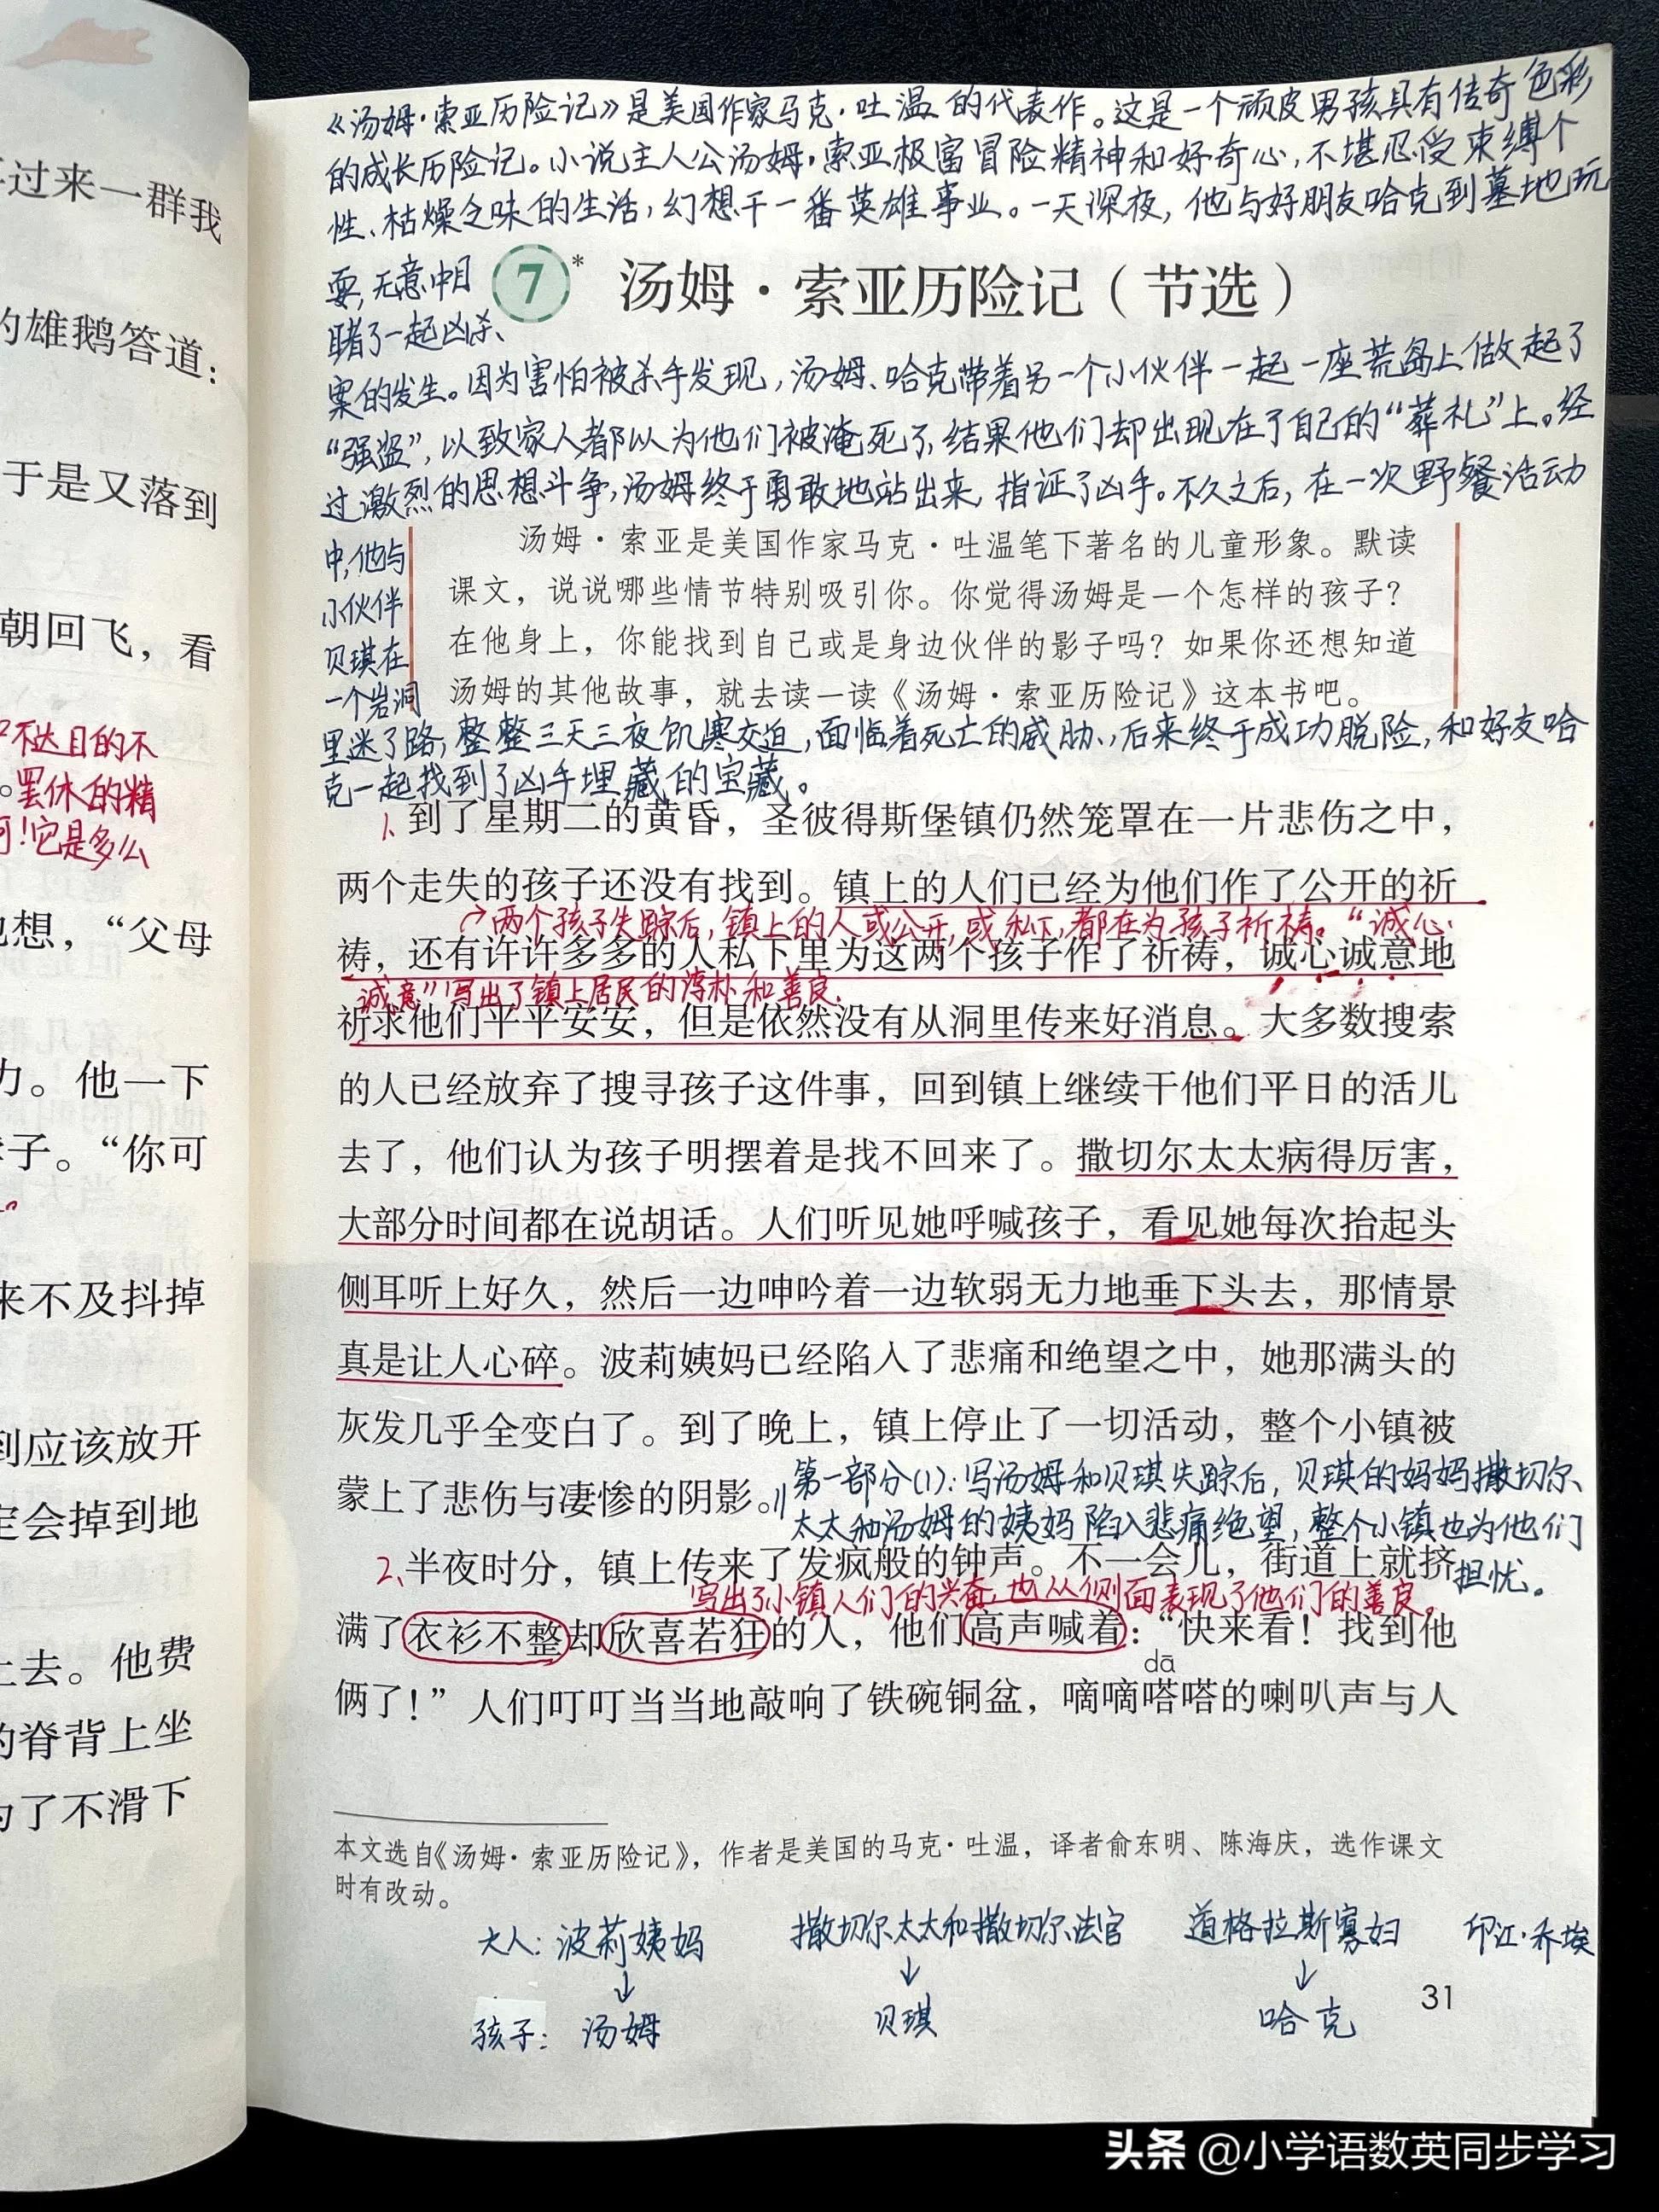 过来一群我
的雄鹅答道：
于是又落到
朝回飞，看
不达目的不
罢休的精
！它是多么
想，“父母
力。他一下
子。“你可
来不及抖掉
到应该放开
定会掉到地
上去。他费
的脊背上坐
为了不滑下
《汤姆·索亚历险记》是美国作家马克·吐温的代表作。这是一个顽皮男孩具有传奇色彩
的成长历险记。小说主人公汤姆·索亚极富冒险精神和好奇心，不堪忍受束缚个
性、枯燥乏味的生活，幻想干一番英雄事业。一天深夜，他与好朋友哈克到墓地玩
耍，无意中目
睹了一起凶杀
7* 汤姆·索亚历险记（节选）
案的发生。因为害怕被杀手发现，汤姆、哈克带着另一个小伙伴一起一座荒岛上做起了
“强盗”，以致家人都以为他们被淹死了，结果他们却出现在了自己的“葬礼”上。经
过激烈的思想斗争，汤姆终于勇敢地站出来，指证了凶手。不久之后，在一次野餐活动
中，他与
小伙伴
贝琪在
一个岩洞
汤姆·索亚是美国作家马克·吐温笔下著名的儿童形象。默读
课文，说说哪些情节特别吸引你。你觉得汤姆是一个怎样的孩子？
在他身上，你能找到自己或是身边伙伴的影子吗？如果你还想知道
汤姆的其他故事，就去读一读《汤姆·索亚历险记》这本书吧。
里迷了路，整整三天三夜饥寒交迫，面临着死亡的威胁，后来终于成功脱险，和好友哈
克一起找到了凶手埋藏的宝藏。
1、到了星期二的黄昏，圣彼得斯堡镇仍然笼罩在一片悲伤之中，
两个走失的孩子还没有找到。镇上的人们已经为他们作了公开的祈
两个孩子失踪后，镇上的人或公开，或私下，都在为孩子祈祷。“诚心
祷，还有许许多多的人私下里为这两个孩子作了祈祷，诚心诚意地
诚意”写出了镇上居民的淳朴和善良。
祈求他们平平安安，但是依然没有从洞里传来好消息。大多数搜索
的人已经放弃了搜寻孩子这件事，回到镇上继续干他们平日的活儿
去了，他们认为孩子明摆着是找不回来了。撒切尔太太病得厉害，
大部分时间都在说胡话。人们听见她呼喊孩子，看见她每次抬起头
侧耳听上好久，然后一边呻吟着一边软弱无力地垂下头去，那情景
真是让人心碎。波莉姨妈已经陷入了悲痛和绝望之中，她那满头的
灰发几乎全变白了。到了晚上，镇上停止了一切活动，整个小镇被
蒙上了悲伤与凄惨的阴影。
第一部分(1)：写汤姆和贝琪失踪后，贝琪的妈妈撒切尔
太太和汤姆的姨妈陷入悲痛绝望，整个小镇也为他们
担忧。
2、半夜时分，镇上传来了发疯般的钟声。不一会儿，街道上就挤
写出了小镇人们的兴奋，也从侧面表现了他们的善良。
满了衣衫不整却欣喜若狂的人，他们高声喊着：“快来看！找到他
dā
俩了！”人们叮叮当当地敲响了铁碗铜盆，嘀嘀嗒嗒的喇叭声与人
本文选自《汤姆·索亚历险记》，作者是美国的马克·吐温，译者俞东明、陈海庆，选作课文
时有改动。
大人：波莉姨妈 撒切尔太太和撒切尔法官 道格拉斯寡妇 印江·乔埃
↓ ↓ ↓
孩子：汤姆 贝琪 哈克
31
头条 @小学语数英同步学习